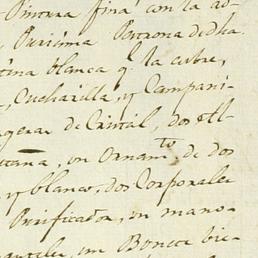 Pintura fina con la ad-
Purisima Patrona dedha.
tina blanca q.e la cubre,
, Cucharilla, y Campani-
ageras de Cristal, dos All-
un Ornam.to de dos
y blanco, dos Corporales
Purificador, un manu-
un Bonete bie-